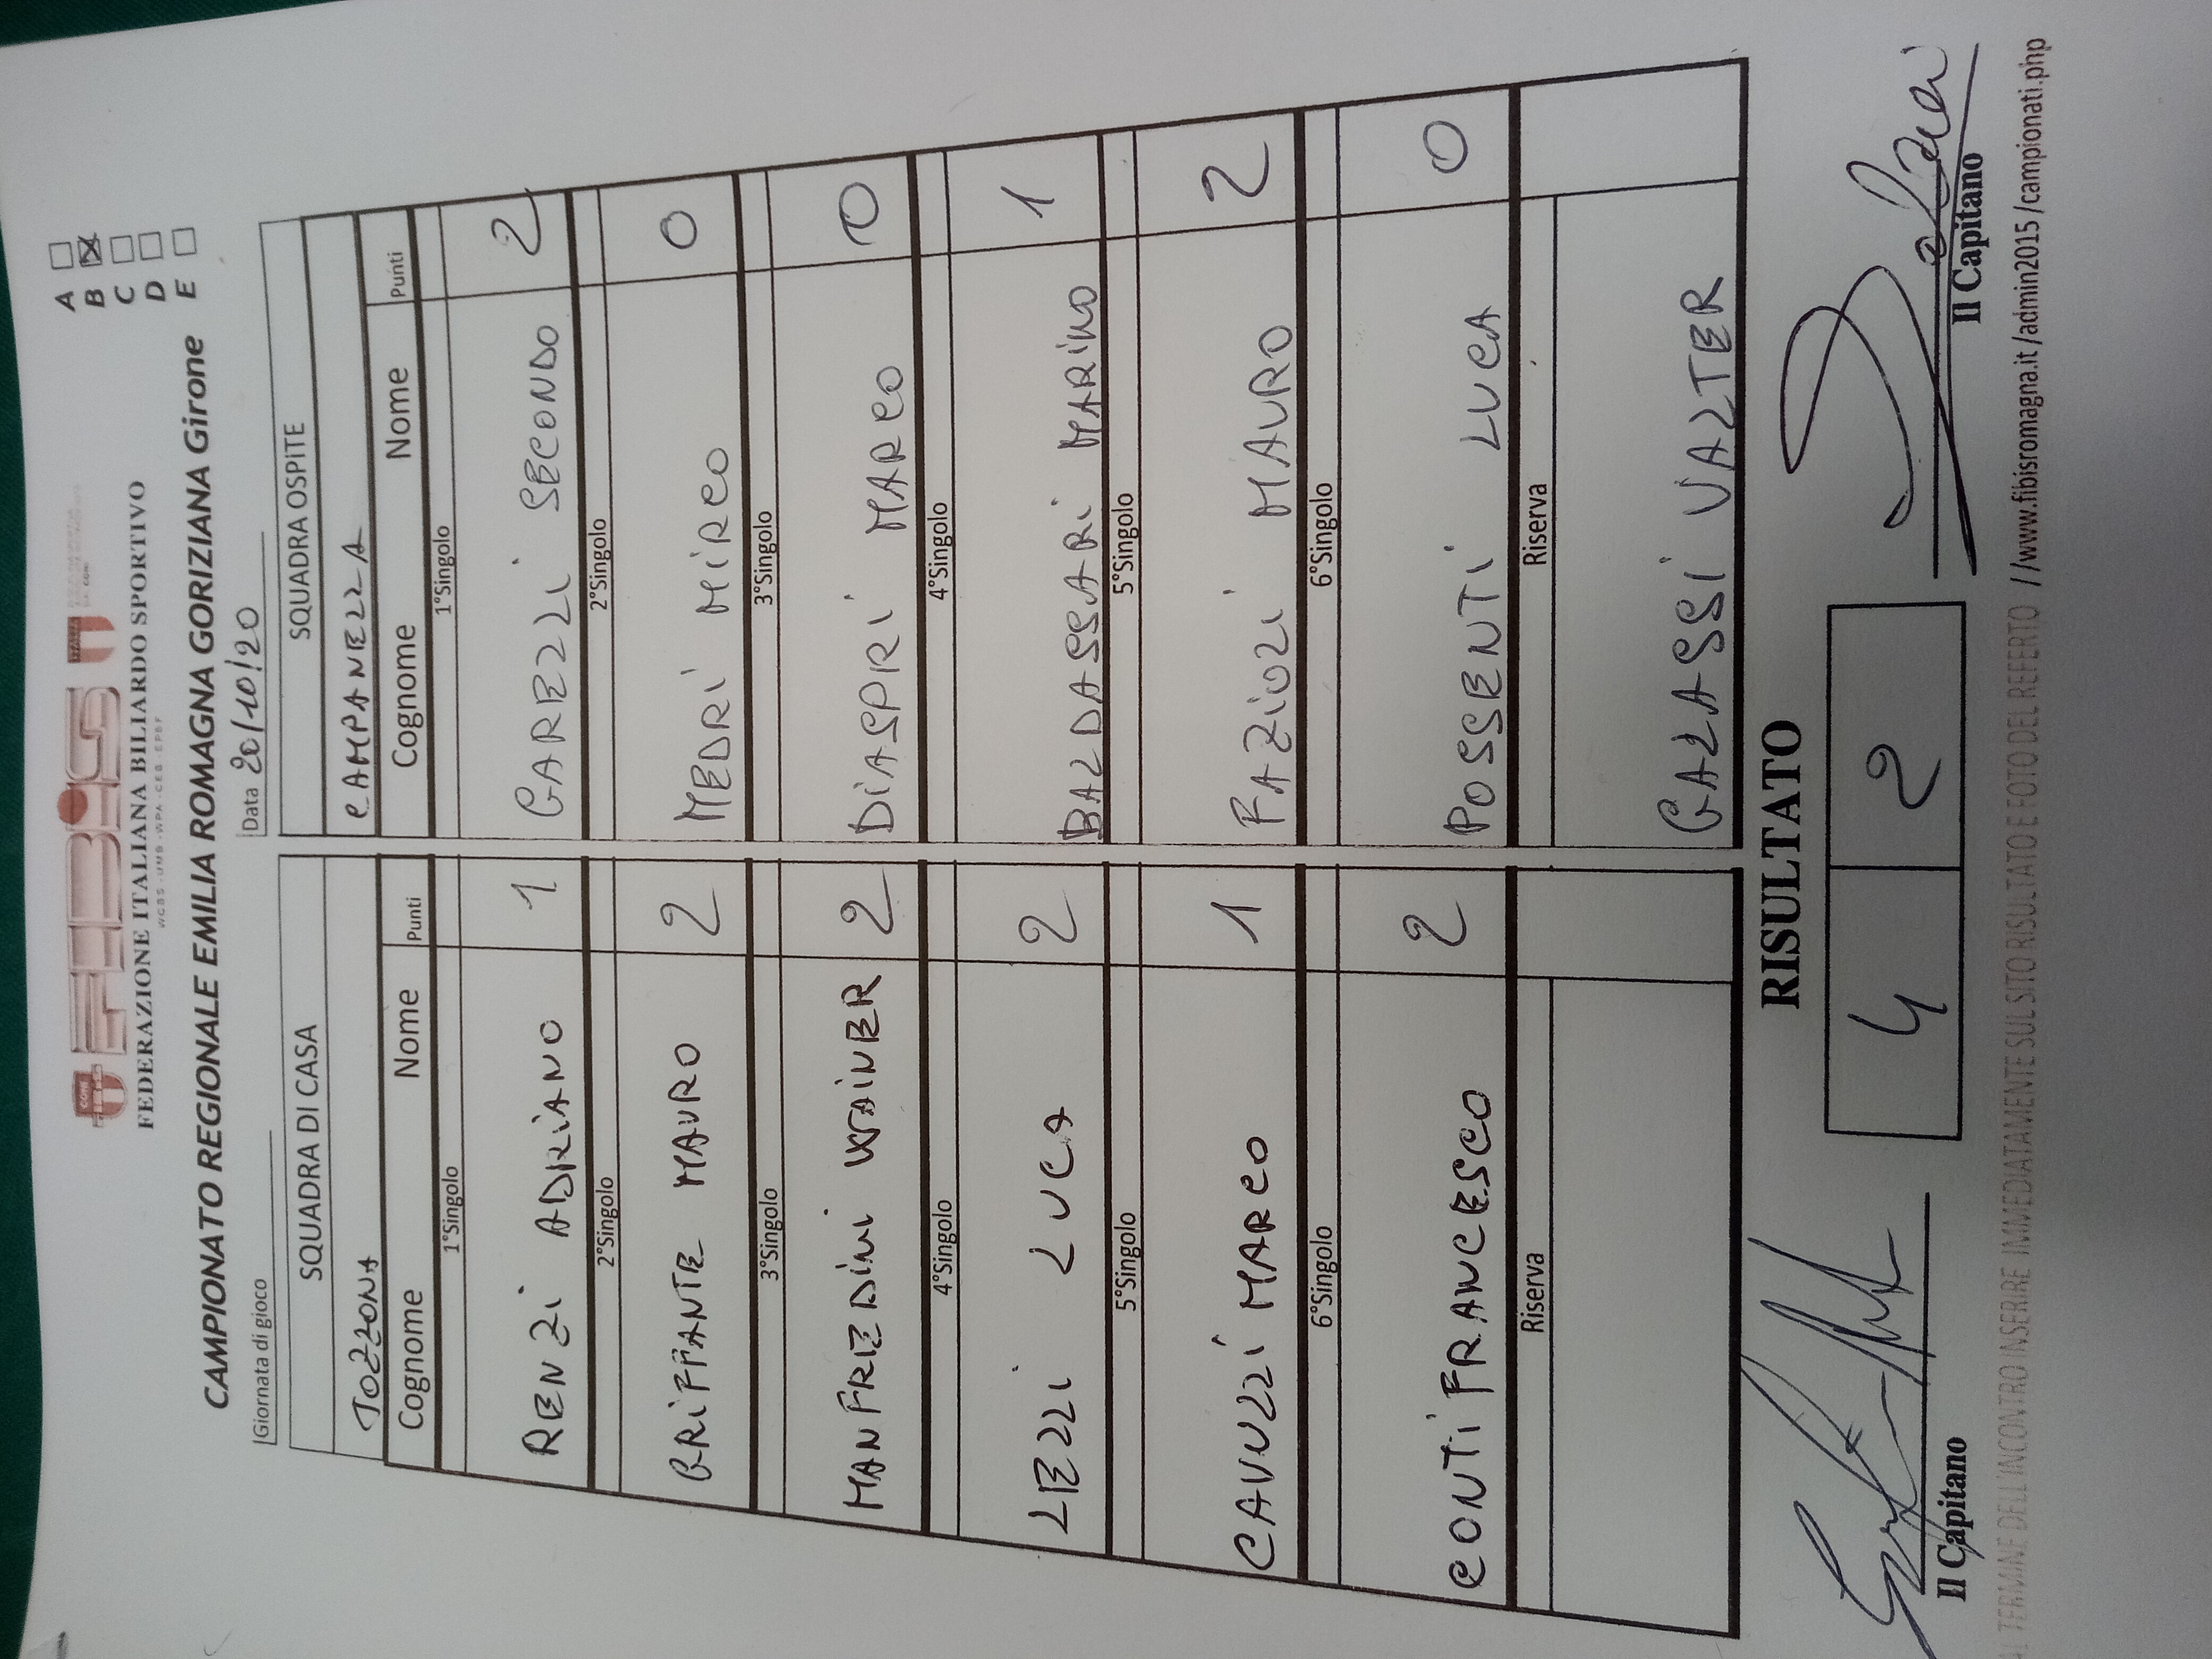 FEDERAZIONE ITALIANA BILIARDO SPORTIVO
CAMPIONATO REGIONALE EMILIA ROMAGNA GORIZIANA Girone
A
B
C
D
E
Giornata di gioco
Data 20/10/20
SQUADRA DI CASA SQUADRA OSPITE
TOZZONA CAMPANEZZA
Cognome Nome Punti Cognome Nome Punti
1°Singolo 1°Singolo
RENZI ADRIANO 1 GAREZZI SECONDO 2
2°Singolo 2°Singolo
GRIFFANTE MAURO 2 MEDRI MIRCO 0
3°Singolo 3°Singolo
MANFREDINI WAINER 2 DIASPRI MARCO 0
4°Singolo 4°Singolo
LEZZI LUCA 2 BALDASSARI MARINO 1
5°Singolo 5°Singolo
CAVUZZI MARCO 1 FAZIOLI MAURO 2
6°Singolo 6°Singolo
CONTI FRANCESCO 2 POSSENTI LUCA 0
Riserva Riserva
GALASSI VALTER
RISULTATO
4 2
Il Capitano Il Capitano
AL TERMINE DELL'INCONTRO INSERIRE IMMEDIATAMENTE SUL SITO RISULTATO E FOTO DEL REFERTO //www.fibisromagna.it/admin2015/campionati.php